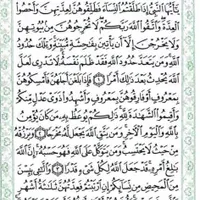 يَٰٓأَيُّهَا ٱلنَّبِيُّ إِذَا طَلَّقْتُمُ ٱلنِّسَآءَ فَطَلِّقُوهُنَّ لِعِدَّتِهِنَّ وَأَحْصُوا۟
ٱلْعِدَّةَ وَٱتَّقُوا۟ ٱللَّهَ رَبَّكُمْ لَا تُخْرِجُوهُنَّ مِنۢ بُيُوتِهِنَّ
وَلَا يَخْرُجْنَ إِلَّآ أَن يَأْتِينَ بِفَٰحِشَةٍ مُّبَيِّنَةٍ وَتِلْكَ حُدُودُ
ٱللَّهِ وَمَن يَتَعَدَّ حُدُودَ ٱللَّهِ فَقَدْ ظَلَمَ نَفْسَهُۥ لَا تَدْرِى لَعَلَّ
ٱللَّهَ يُحْدِثُ بَعْدَ ذَٰلِكَ أَمْرًا ١ فَإِذَا بَلَغْنَ أَجَلَهُنَّ فَأَمْسِكُوهُنَّ
بِمَعْرُوفٍ أَوْ فَارِقُوهُنَّ بِمَعْرُوفٍ وَأَشْهِدُوا۟ ذَوَىْ عَدْلٍ مِّنكُمْ
وَأَقِيمُوا۟ ٱلشَّهَٰدَةَ لِلَّهِ ذَٰلِكُمْ يُوعَظُ بِهِۦ مَن كَانَ يُؤْمِنُ
بِٱللَّهِ وَٱلْيَوْمِ ٱلْءَاخِرِ وَمَن يَتَّقِ ٱللَّهَ يَجْعَل لَّهُۥ مَخْرَجًا ٢ وَيَرْزُقْهُ
مِنْ حَيْثُ لَا يَحْتَسِبُ وَمَن يَتَوَكَّلْ عَلَى ٱللَّهِ فَهُوَ حَسْبُهُۥٓ إِنَّ ٱللَّهَ
بَٰلِغُ أَمْرِهِۦ قَدْ جَعَلَ ٱللَّهُ لِكُلِّ شَىْءٍ قَدْرًا ٣ وَٱلَّٰٓـِٔى يَئِسْنَ
مِنَ ٱلْمَحِيضِ مِن نِّسَآئِكُمْ إِنِ ٱرْتَبْتُمْ فَعِدَّتُهُنَّ ثَلَٰثَةُ أَشْهُرٍ